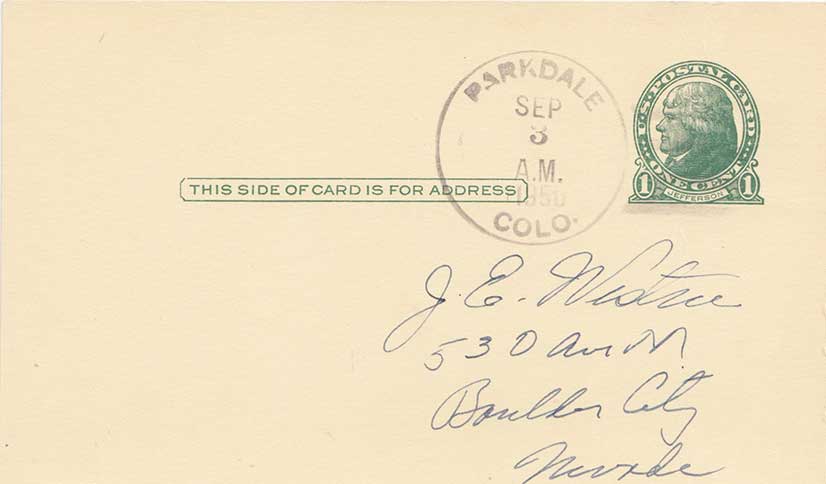 PARKDALE
SEP
3
A.M.
1950
COLO.
U.S. POSTAL CARD
ONE CENT
1 1
JEFFERSON
THIS SIDE OF CARD IS FOR ADDRESS
J. E.
530 Ave M
Boulder City
Nevada